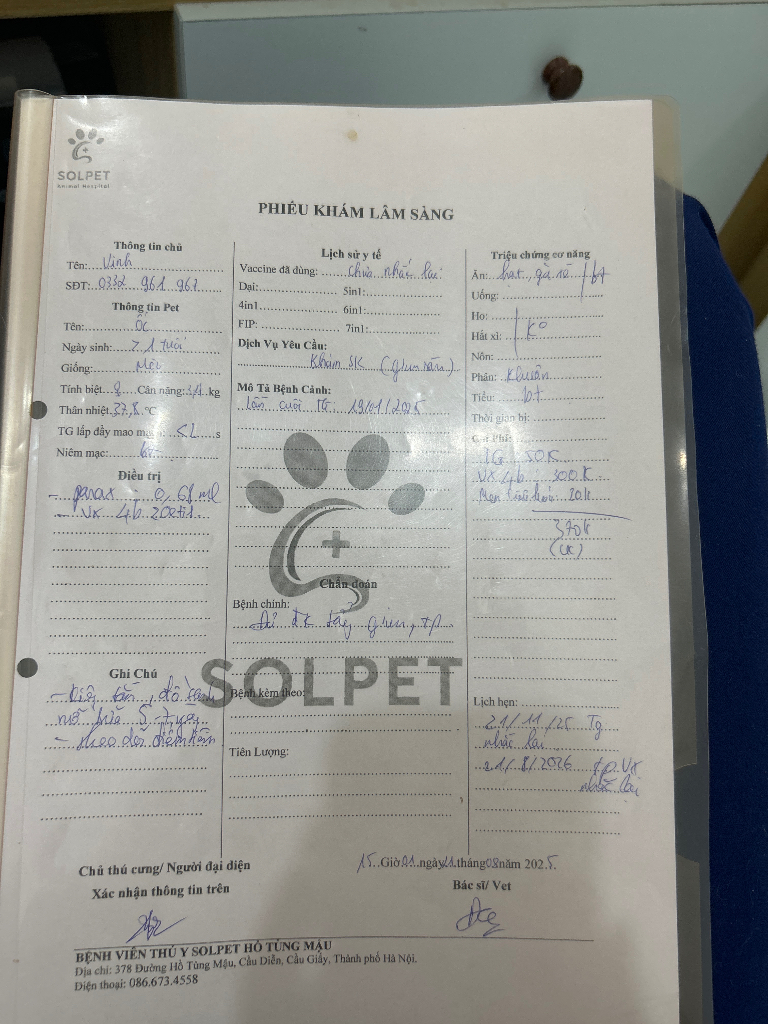 SOLPET
Animal Hospital
PHIẾU KHÁM LÂM SÀNG
Thông tin chủ
Tên: Vinh
SĐT: 0332 961 967
Thông tin Pet
Tên: Ốc
Ngày sinh: 7.1 tuổi
Giống: Mèo
Tính biệt Cân nặng: 3,4 kg
Thân nhiệt 37,8 °C
TG lấp đầy mao mạch: <2 s
Niêm mạc: bt
Điều trị
- parax 0,68 ml
- Vx 4b
Ghi Chú
- Kiêng tắm, đồ tanh
mỡ sữa 5-7 ngày
- theo dõi thêm
Lịch sử y tế
Vaccine đã dùng: chưa nhắc lại
Dại: 5in1:
4in1 6in1:
FIP: 7in1:
Dịch Vụ Yêu Cầu:
Khám SK
Mô Tả Bệnh Cảnh:
lần cuối 19/01/2025
Chẩn đoán
Bệnh chính:
Đủ ĐK tẩy giun, tp
Bệnh kèm theo:
Tiên Lượng:
Triệu chứng cơ năng
Ăn: hạt, gà bt
Uống:
Ho:
Hắt xì: K°
Nôn:
Phân: Khuôn
Tiểu: bt
Thời gian bị:
Chi Phí:
TG 50K
Vx 4b 300K
Men tiêu hóa 20k
370k
(CK)
Lịch hẹn:
21/11/25 Tg
nhắc lại
21/8/2026 tp Vx
nhắc lại
15 Giờ 01 ngày 21 tháng 08 năm 2025.
Chủ thú cưng/ Người đại diện
Xác nhận thông tin trên
Bác sĩ/ Vet
SOLPET
BỆNH VIỆN THÚ Y SOLPET HỒ TÙNG MẬU
Địa chỉ: 378 Đường Hồ Tùng Mậu, Cầu Diễn, Cầu Giấy, Thành phố Hà Nội.
Điện thoại: 086.673.4558